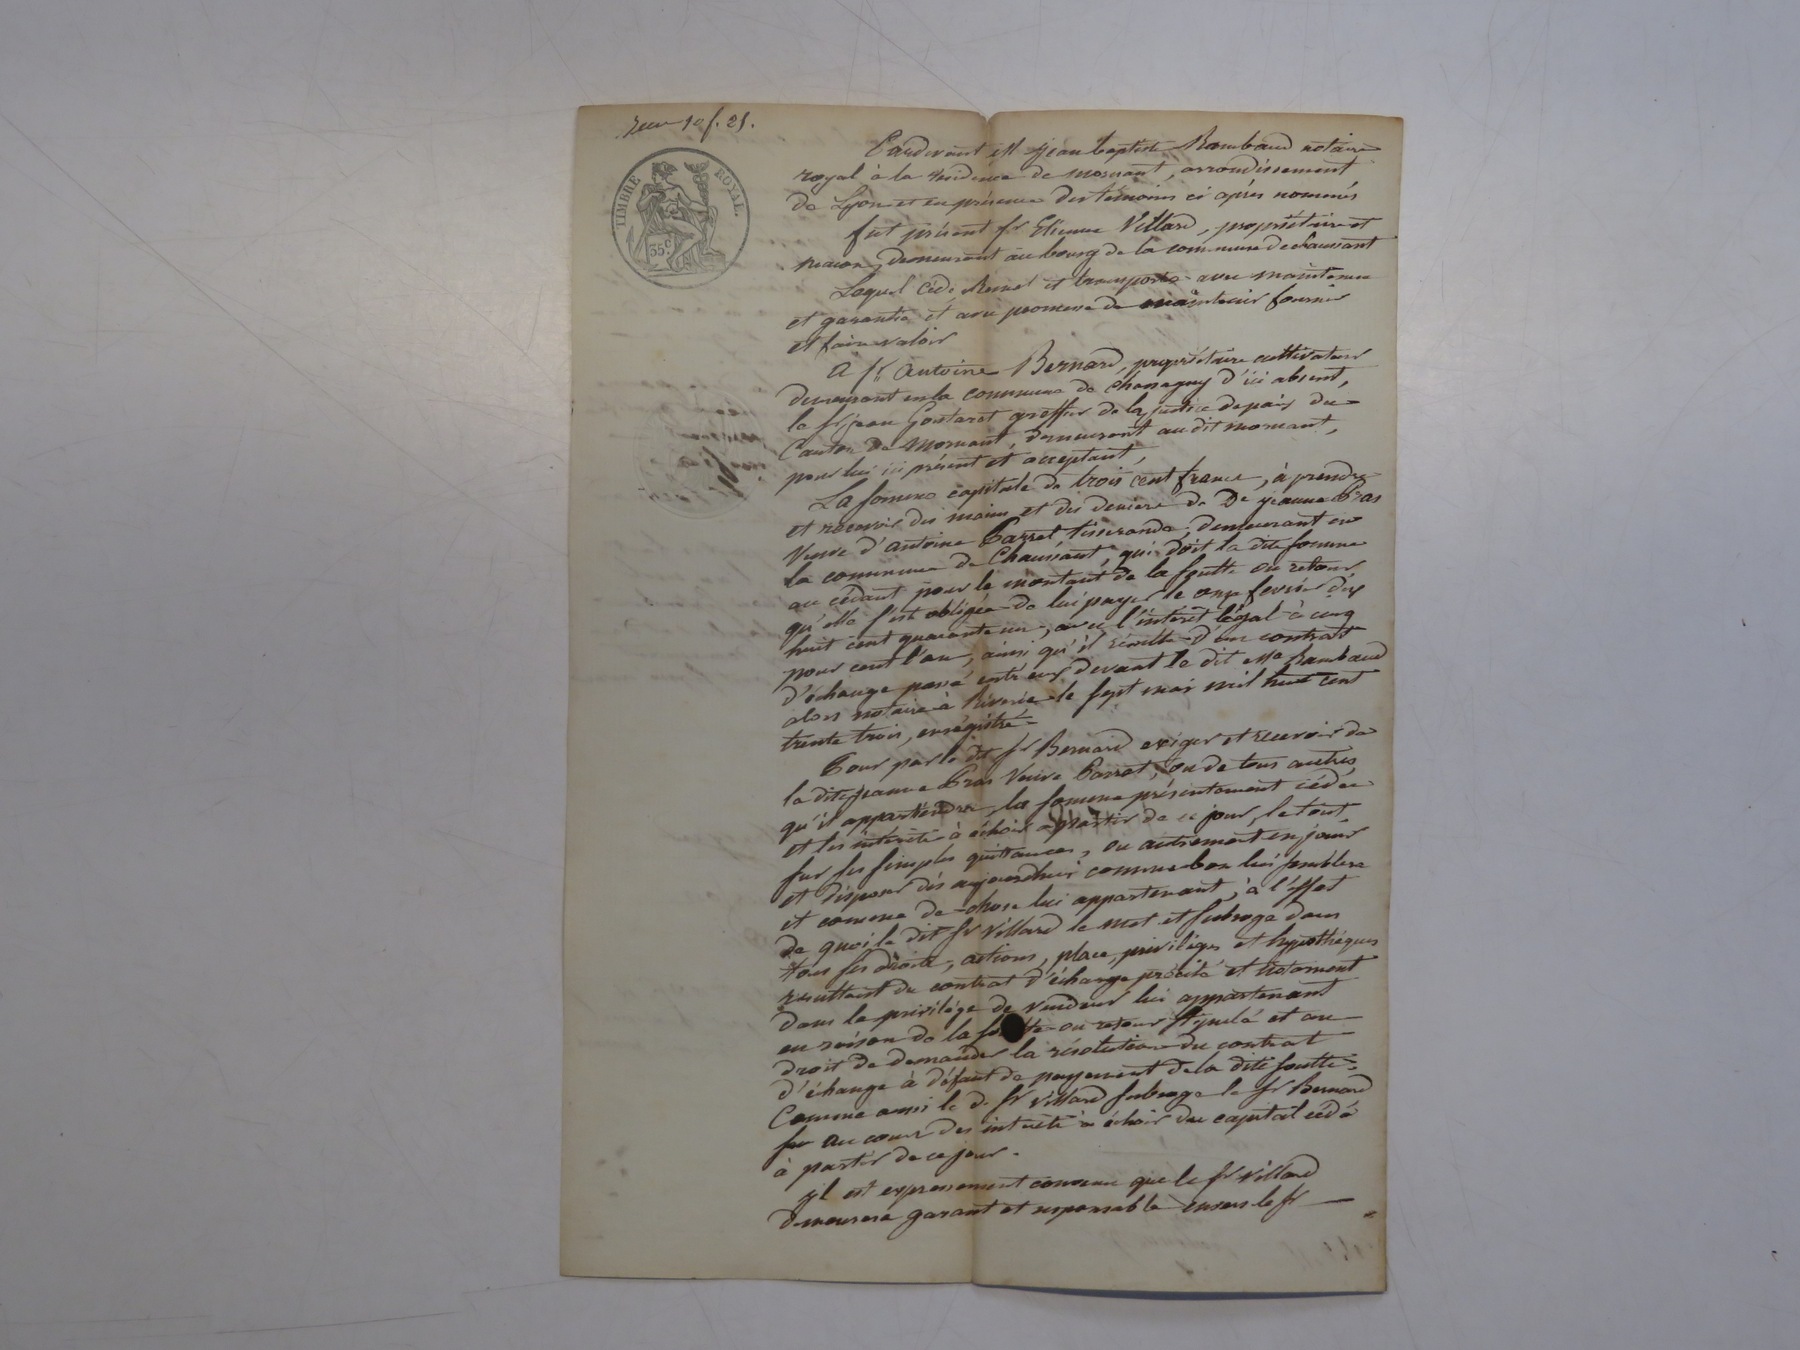 10 f. 25.
TIMBRE ROYAL.
35 c
Pardevant Me jean baptiste Rambaud notaire
royal à la résidence de mornant, arrondissement
de Lyon et en présence des témoins ci après nommés
fut présent sr Etienne Villard, propriétaire et
maçon, demeurant au bourg de la commune de chaussant
Lequel cède remet et transporte avec maintenue
et garantie et avec promesse de maintenir fournir
et faire valoir
à sr Antoine Bernard, propriétaire cultivateur
demeurant en la commune de Chassagny d'ici absent,
le sr jean Goutaret greffier de la justice de paix du
Canton de Mornant, demeurant audit mornant,
pour lui ici présent et acceptant,
La somme capitale de trois cent francs, à prendre
et recevoir des mains et des deniers de De jeanne Bras
Veuve d'antoine Barret tisserande, demeurant en
la commune de Chaussant, qui doit la dite somme
au cédant pour le montant de la soulte ou retour
qu'elle s'est obligée de lui payer le onze fevrier dix
huit cent quarante un, avec l'intérêt légal à cinq
pour cent l'an, ainsi qu'il résulte d'un contrat
d'échange passé entr'eux devant le dit Me Rambaud
alors notaire à Riverie le sept mai mil huit cent
trente trois, enregistré.
Pour par le dit sr Bernard exiger et recevoir de
la dite jeanne Bras Veuve Barret, ou de tous autres
qu'il appartiendra, la somme présentement cédée
et les intérêts à échoir à partir de ce jour, le tout
sur ses simples quittances, ou autrement en jouir
et disposer dès aujourdhui comme bon lui semblera
et comme de chose lui appartenant, à l'effet
de quoi le dit sr Villard le met et subroge dans
tous ses droits, actions, place, privilèges et hypothèques
résultant du contrat d'échange précité et notament
dans le privilége de vendeur lui appartenant
en raison de la soulte ou retour stipulé et au
droit de demander la résolution du contrat
d'échange à défaut de payement de la dite soulte.
Comme aussi le d. sr Villard subroge le sr Bernard
au cours des intérêts à échoir du capital cédé
à partir de ce jour.
il est expressement convenu que le sr villard
demeurera garant et responsable envers le sr